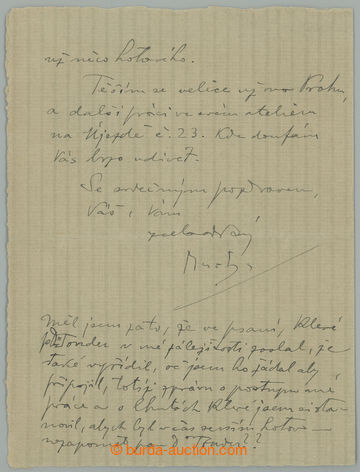 už něco hotového.
Těším se velice už na Prahu,
a další práci ve svém ateliéru
na Újezdě č. 23. Kde doufám
Vás brzo uvidět.
Se srdečným pozdravem,
Váš i Vám
zcela oddaný
Mucha
Měl jsem za to, že ve psaní, které
p. Tonder v mé záležitosti poslal, že
také vyřídil, oč jsem ho žádal aby
připojil, totiž zprávu o postupu mé
práce a o lhutách které jsem si sta-
novil, abych byl včas se vším hotov –
zapomněl na to
www.burda-auction.com